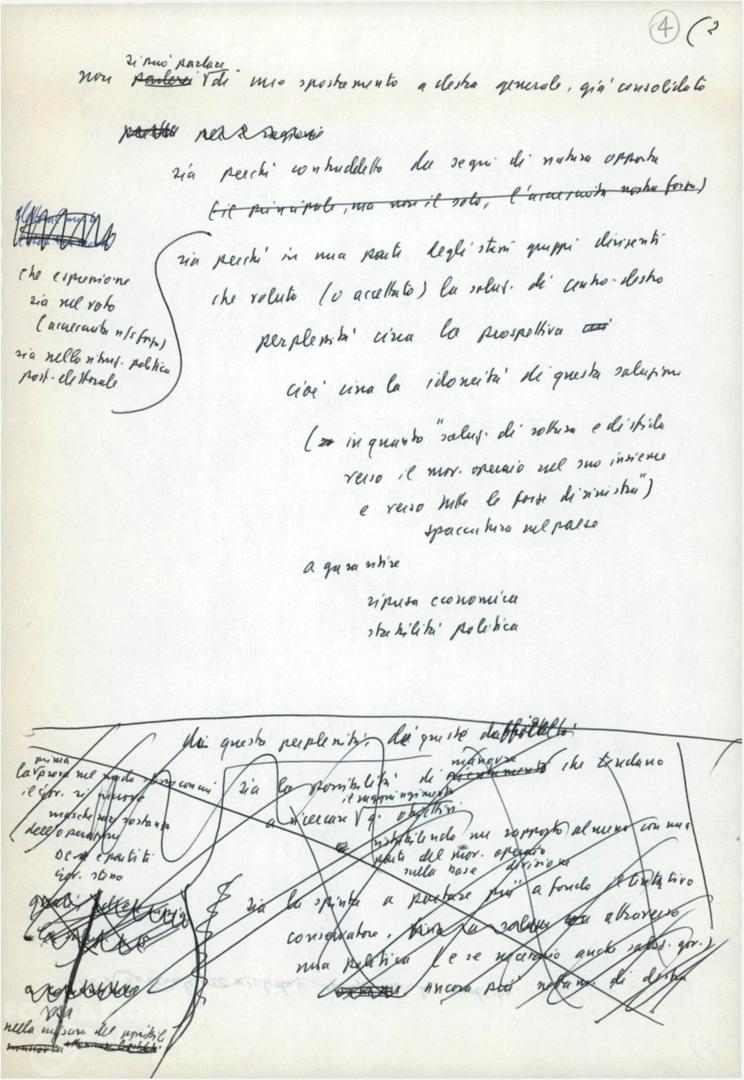 4
si può parlare
non parlerei di uno spostamento a destra generale, già consolidato
per
sia perché contraddetto da segni di natura opposta
(il principale, ma non il solo, l'accresciuta nostra forza)
sia perché in una parte degli stessi gruppi dirigenti
che voluto (o accettato) la soluz. di centro-destra
perplessità circa la prospettiva
cioè circa la idoneità di questa soluzione
(in quanto "soluz. di rottura e di sfida
verso il mov. operaio nel suo insieme
e verso tutte le forze di sinistra")
spaccatura nel paese
a garantire
ripresa economica
stabilità politica
che espressione
sia nel voto
(accresciuta ns/ forza)
sia nella situaz. politica
post-elettorale
da queste perplessità, da queste
sia la possibilità di manovre che tendano
il raggiungimento
a ricercare gli obiettivi
ristabilendo un rapporto almeno con una
parte del mov. operaio
sulla base divisione
sia la spinta a portare più a fondo il tentativo
conservatore, attraverso
una politica (e se necessario anche soluz. gov.)
ancora più di destra
prima
la prova nel modo
il gov. si muove
maschera sostanza
dell'operazione
DC e partiti
gov. stesso
nella misura del